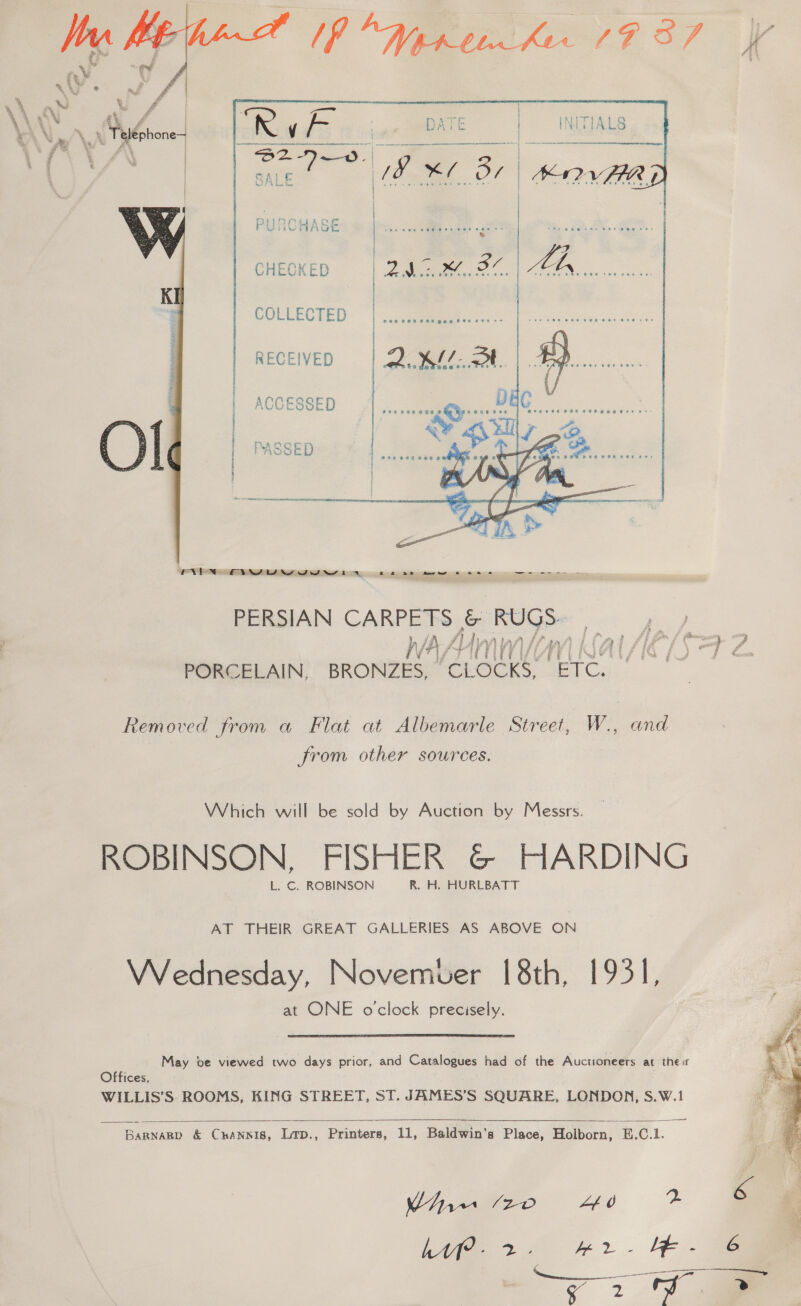 18th November 1931
Telephone—
R & F DATE INITIALS
SALE 18 XI 31
W
PURCHASE
CHECKED
KI
COLLECTED
RECEIVED
ACCESSED DEC
Ol
PASSED
PERSIAN CARPETS & RUGS
PORCELAIN, BRONZES, CLOCKS, ETC.
Removed from a Flat at Albemarle Street, W., and
from other sources.
Which will be sold by Auction by Messrs.
ROBINSON, FISHER & HARDING
L. C. ROBINSON R. H. HURLBATT
AT THEIR GREAT GALLERIES AS ABOVE ON
Wednesday, November 18th, 1931,
at ONE o'clock precisely.
May be viewed two days prior, and Catalogues had of the Auctioneers at their
Offices,
WILLIS'S ROOMS, KING STREET, ST. JAMES'S SQUARE, LONDON, S.W.1
BARNARD & CHANNIS, LTD., Printers, 11, Baldwin's Place, Holborn, E.C.1.
40 2 6
2. 42 - 4 - 6